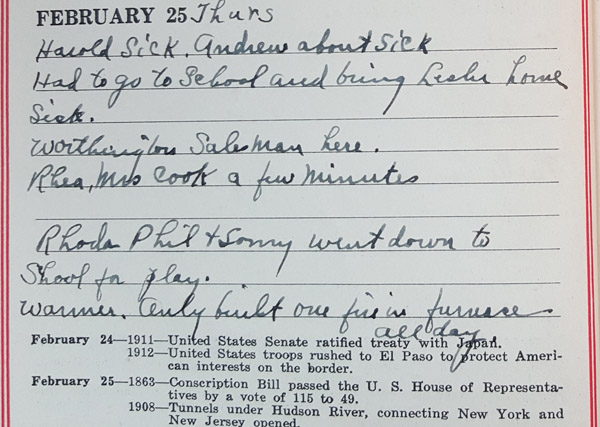 FEBRUARY 25 Thurs
Harold Sick. Andrew about Sick
Had to go to School and bring Leslie home
Sick.
Worthington Salesman here.
Rhea, Mrs Cook a few minutes
Rhoda Phil + Sonny went down to
Shool for play.
Warmer. Only built one fire in furnace
all day
February 24—1911—United States Senate ratified treaty with Japan.
1912—United States troops rushed to El Paso to protect Ameri-
can interests on the border.
February 25—1863—Conscription Bill passed the U. S. House of Representa-
tives by a vote of 115 to 49.
1908—Tunnels under Hudson River, connecting New York and
New Jersey opened.